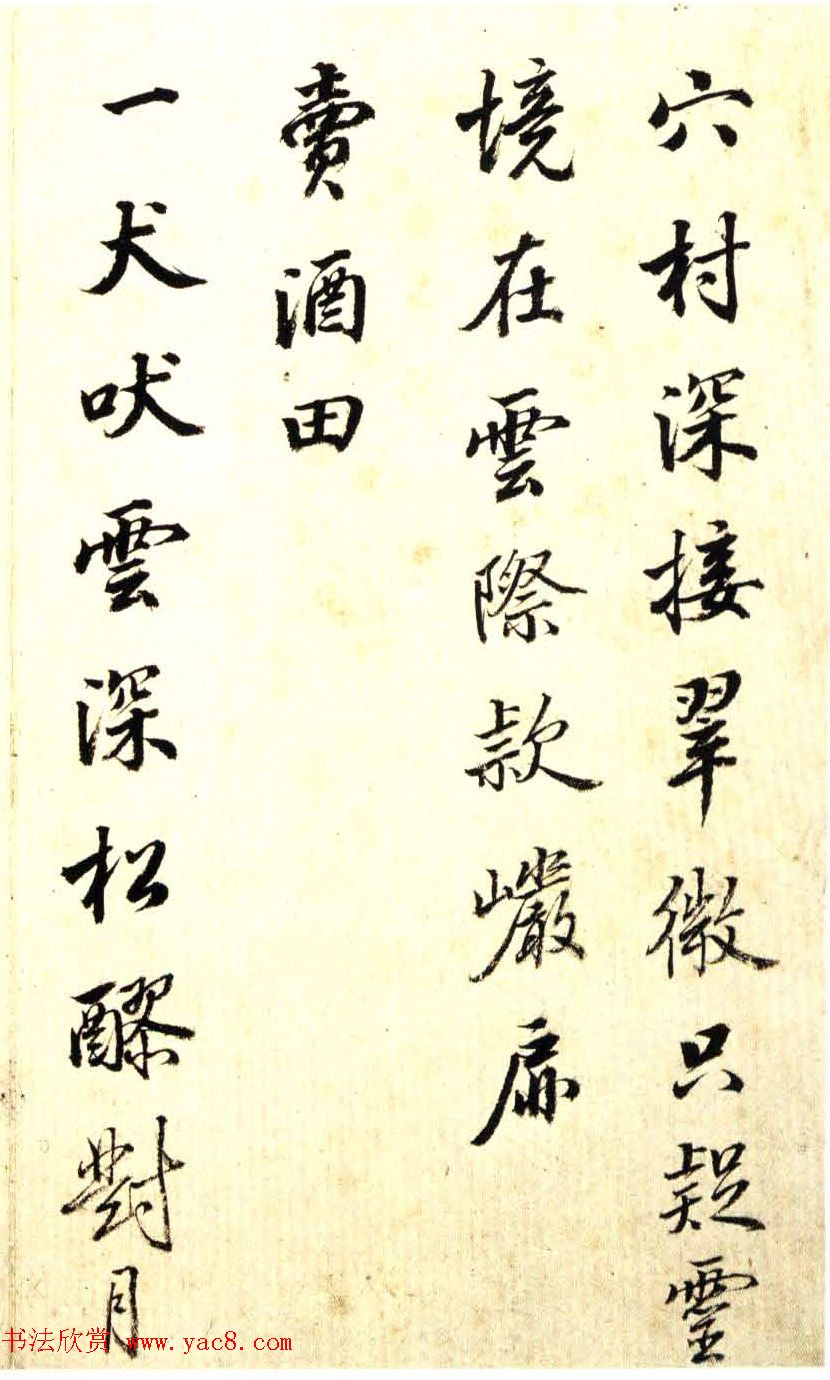 穴村深接翠微只疑靈
境在雲際款巖扉
賣酒田
一犬吠雲深松醪對月
书法欣赏 www.yac8.com